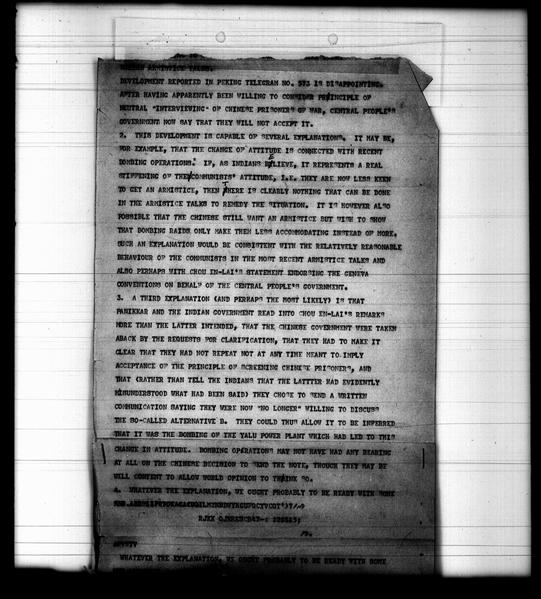 KOREAN ARMISTICE TALKS.
DEVELOPMENT REPORTED IN PEKING TELEGRAM NO. 573 IS DISAPPOINTING.
AFTER HAVING APPARENTLY BEEN WILLING TO CONSIDER PRINCIPLE OF
NEUTRAL "INTERVIEWING" OF CHINESE PRISONERS OF WAR, CENTRAL PEOPLE'S
GOVERNMENT NOW SAY THAT THEY WILL NOT ACCEPT IT.
2. THIS DEVELOPMENT IS CAPABLE OF SEVERAL EXPLANATIONS. IT MAY BE,
FOR EXAMPLE, THAT THE CHANGE OF ATTITUDE IS CONNECTED WITH RECENT
BOMBING OPERATIONS. IF, AS INDIANS BELIEVE, IT REPRESENTS A REAL
STIFFENING OF THE COMMUNISTS' ATTITUDE, I.E. THEY ARE NOW LESS KEEN
TO GET AN ARMISTICE, THEN THERE IS CLEARLY NOTHING THAT CAN BE DONE
IN THE ARMISTICE TALKS TO REMEDY THE SITUATION. IT IS HOWEVER ALSO
POSSIBLE THAT THE CHINESE STILL WANT AN ARMISTICE BUT WISH TO SHOW
THAT BOMBING RAIDS ONLY MAKE THEM LESS ACCOMMODATING INSTEAD OF MORE.
SUCH AN EXPLANATION WOULD BE CONSISTENT WITH THE RELATIVELY REASONABLE
BEHAVIOUR OF THE COMMUNISTS IN THE MOST RECENT ARMISTICE TALKS AND
ALSO PERHAPS WITH CHOU EN-LAI'S STATEMENT ENDORSING THE GENEVA
CONVENTIONS ON BEHALF OF THE CENTRAL PEOPLE'S GOVERNMENT.
3. A THIRD EXPLANATION (AND PERHAPS THE MOST LIKELY) IS THAT
PANIKKAR AND THE INDIAN GOVERNMENT READ INTO CHOU EN-LAI'S REMARKS
MORE THAN THE LATTER INTENDED, THAT THE CHINESE GOVERNMENT WERE TAKEN
ABACK BY THE REQUESTS FOR CLARIFICATION, THAT THEY HAD TO MAKE IT
CLEAR THAT THEY HAD NOT REPEAT NOT AT ANY TIME MEANT TO IMPLY
ACCEPTANCE OF THE PRINCIPLE OF SCREENING CHINESE PRISONERS, AND
THAT (RATHER THAN TELL THE INDIANS THAT THE LATTTER HAD EVIDENTLY
MISUNDERSTOOD WHAT HAD BEEN SAID) THEY CHOSE TO SEND A WRITTEN
COMMUNICATION SAYING THEY WERE NOW "NO LONGER" WILLING TO DISCUSS
THE SO-CALLED ALTERNATIVE B. THEY COULD THUS ALLOW IT TO BE INFERRED
THAT IT WAS THE BOMBING OF THE YALU POWER PLANT WHICH HAD LED TO THIS
CHANGE IN ATTITUDE. BOMBING OPERATIONS MAY NOT HAVE HAD ANY BEARING
AT ALL ON THE CHINESE DECISION TO SEND THE NOTE, THOUGH THEY MAY BE
WILL CONTENT TO ALLOW WORLD OPINION TO THINK SO.
4. WHATEVER THE EXPLANATION, WE OUGHT PROBABLY TO BE READY WITH SOME
WHATEVER THE EXPLANATION, WE OUGHT PROBABLY TO BE READY WITH SOME